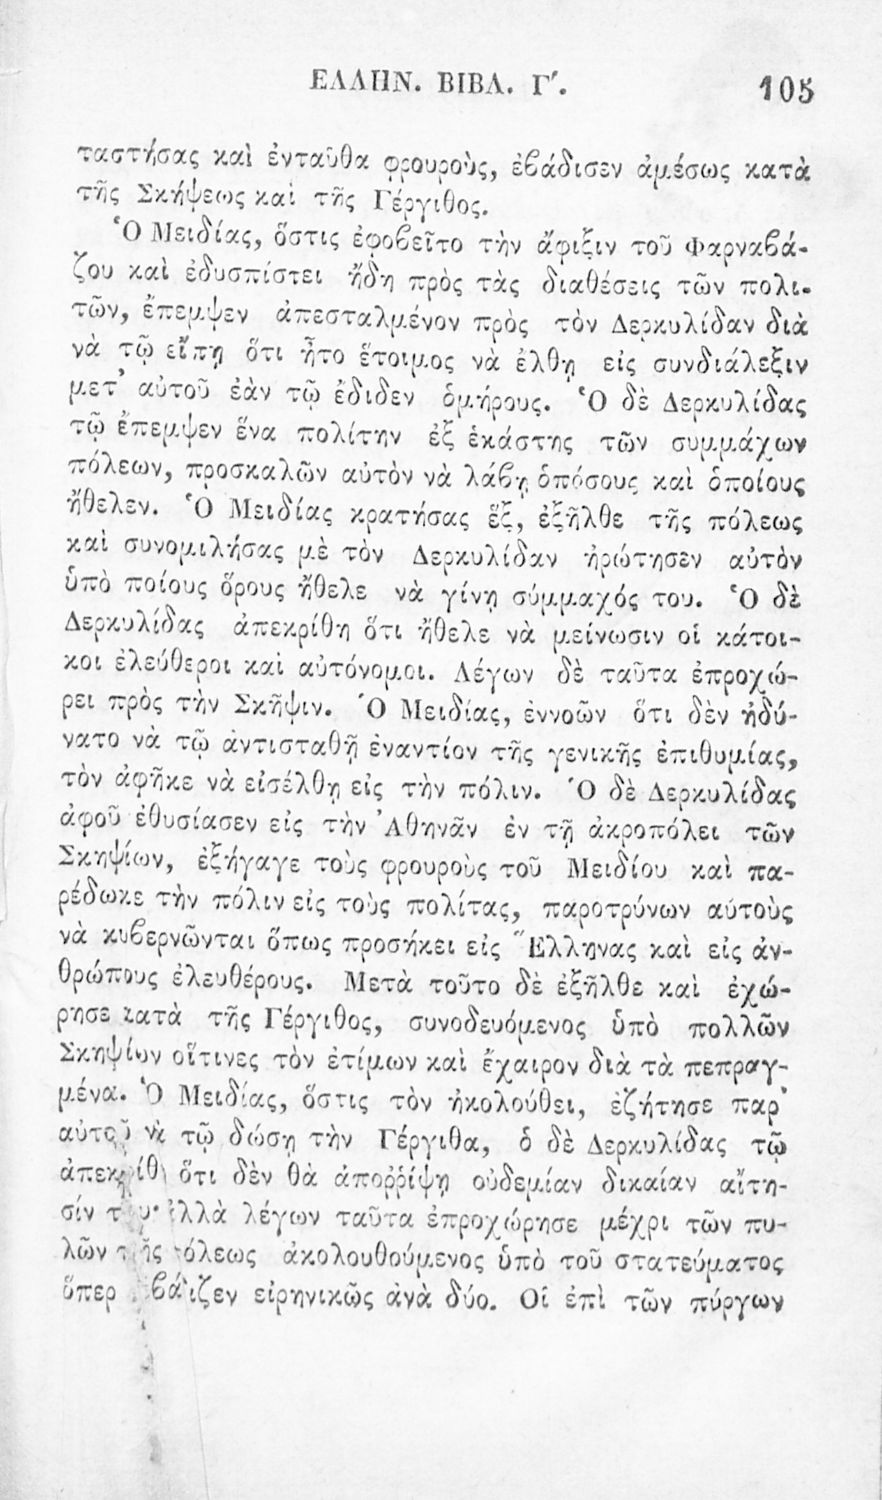 ΕΛΛΗΝ. ΒΙΒΛ. Γʹ. 105
ταστήσας καὶ ἐνταῦθα φρουρούς, ἐβάδισεν ἀμέσως κατὰ
τῆς Σκήψεως καὶ τῆς Γέργιθος.
Ὁ Μειδίας, ὅστις ἐφοβεῖτο τὴν ἄφιξιν τοῦ Φαρναβά-
ζου καὶ ἐδυσπίστει ἤδη πρὸς τὰς διαθέσεις τῶν πολι-
τῶν, ἔπεμψεν ἀπεσταλμένον πρὸς τὸν Δερκυλίδαν διὰ
νὰ τῷ εἴπῃ ὅτι ἦτο ἕτοιμος νὰ ἔλθῃ εἰς συνδιάλεξιν
μετ’ αὐτοῦ ἐὰν τῷ ἔδιδεν ὁμήρους. Ὁ δὲ Δερκυλίδας
τῷ ἔπεμψεν ἕνα πολίτην ἐξ ἑκάστης τῶν συμμάχων
πόλεων, προσκαλῶν αὐτὸν νὰ λάβῃ ὁπόσους καὶ ὁποίους
ἤθελεν. Ὁ Μειδίας κρατήσας ἕξ, ἐξῆλθε τῆς πόλεως
καὶ συνομιλήσας μὲ τὸν Δερκυλίδαν ἠρώτησεν αὐτὸν
ὑπὸ ποίους ὅρους ἤθελε νὰ γίνῃ σύμμαχός του. Ὁ δὲ
Δερκυλίδας ἀπεκρίθη ὅτι ἤθελε νὰ μείνωσιν οἱ κάτοι-
κοι ἐλεύθεροι καὶ αὐτόνομοι. Λέγων δὲ ταῦτα ἐπροχώ-
ρει πρὸς τὴν Σκῆψιν. Ὁ Μειδίας, ἐννοῶν ὅτι δὲν ἠδύ-
νατο νὰ τῷ ἀντισταθῇ ἐναντίον τῆς γενικῆς ἐπιθυμίας,
τὸν ἀφῆκε νὰ εἰσέλθῃ εἰς τὴν πόλιν. Ὁ δὲ Δερκυλίδας
ἀφοῦ ἐθυσίασεν εἰς τὴν Ἀθηνᾶν ἐν τῇ ἀκροπόλει τῶν
Σκηψίων, ἐξήγαγε τοὺς φρουροὺς τοῦ Μειδίου καὶ πα-
ρέδωκε τὴν πόλιν εἰς τοὺς πολίτας, παροτρύνων αὐτοὺς
νὰ κυβερνῶνται ὅπως προσήκει εἰς Ἕλληνας καὶ εἰς ἀν-
θρώπους ἐλευθέρους. Μετὰ τοῦτο δὲ ἐξῆλθε καὶ ἐχώ-
ρησε κατὰ τῆς Γέργιθος, συνοδευόμενος ὑπὸ πολλῶν
Σκηψίων οἵτινες τὸν ἐτίμων καὶ ἔχαιρον διὰ τὰ πεπραγ-
μένα. Ὁ Μειδίας, ὅστις τὸν ἠκολούθει, ἐζήτησε παρ’
αὐτοῦ νὰ τῷ δώσῃ τὴν Γέργιθα, ὁ δὲ Δερκυλίδας τῷ
ἀπεκρίθη ὅτι δὲν θὰ ἀποῤῥίψῃ οὐδεμίαν δικαίαν αἴτη-
σίν του· ἀλλὰ λέγων ταῦτα ἐπροχώρησε μέχρι τῶν πυ-
λῶν τῆς πόλεως ἀκολουθούμενος ὑπὸ τοῦ στατεύματος
ὅπερ ἐβάδιζεν εἰρηνικῶς ἀνὰ δύο. Οἱ ἐπὶ τῶν πύργων